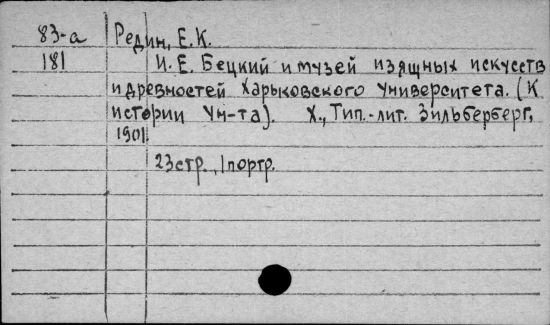 83-а Редин, Е.К.
181 И. Е. Бецкий и музей изящных искусств
и древностей Харьковского университета. (К
истории Ун-та). Х., Тип.-лит. Зильберберг,
1901.
23стр., 1 портр.